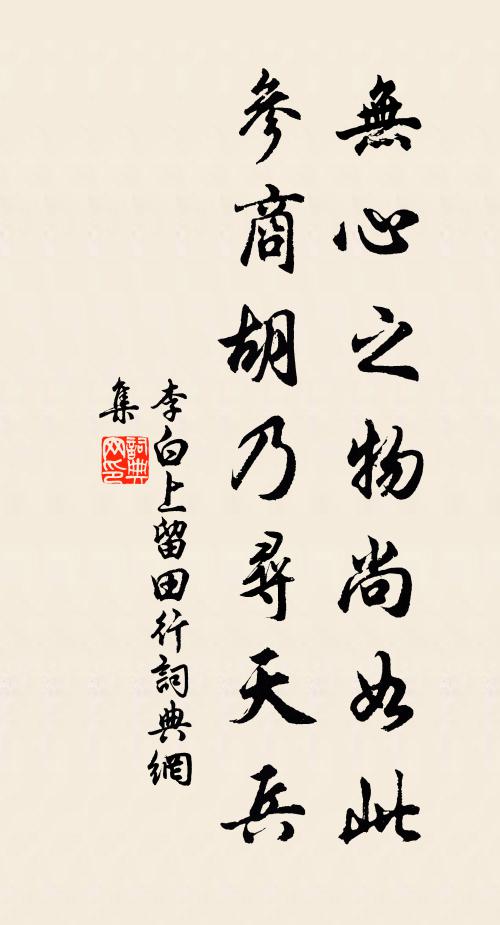 無心之物尚如此
參商胡乃尋天兵
李白上留田行詞典網
集
詞典
网印